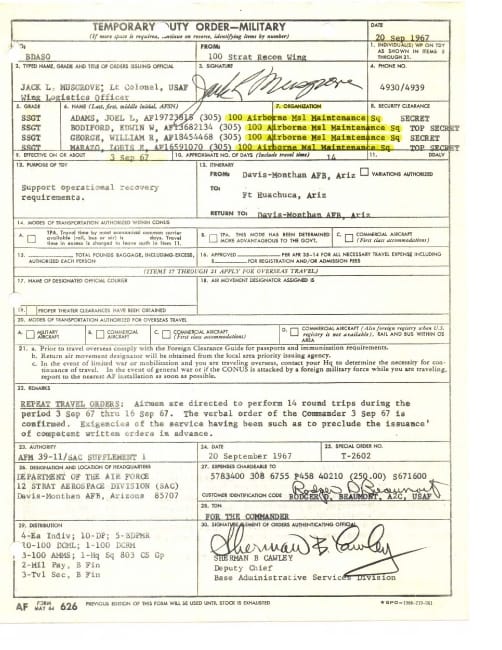 TEMPORARY DUTY ORDER—MILITARY
(If more space is required, continue on reverse, identifying items by number)
DATE
20 Sep 1967
TO:
BDASO
FROM:
100 Strat Recon Wing
1. INDIVIDUAL(S) WP ON TDY AS SHOWN IN ITEMS 5 THROUGH 21.
2. TYPED NAME, GRADE AND TITLE OF ORDERS ISSUING OFFICIAL
JACK L. MUSGROVE; Lt Colonel, USAF
Wing Logistics Officer
3. SIGNATURE
Jack L Musgrove
4. PHONE NO.
4930/4939
5. GRADE
6. NAME (Last, first, middle initial, AFSN)
7. ORGANIZATION
8. SECURITY CLEARANCE
SSGT ADAMS, JOEL L, AF19723815 (305) 100 Airborne Msl Maintenance Sq SECRET
SSGT BODIFORD, EDWIN W, AF13682134 (305) 100 Airborne Msl Maintenance Sq TOP SECRET
SSGT GEORGE, WILLIAM R, AF18454468 (305) 100 Airborne Msl Maintenance Sq SECRET
SSGT MARAZO, LOUIS E, AF16591070 (305) 100 Airborne Msl Maintenance Sq TOP SECRET
9. EFFECTIVE ON OR ABOUT
3 Sep 67
10. APPROXIMATE NO. OF DAYS (Include travel time)
14
11. DDALV
12. PURPOSE OF TDY
Support operational recovery
requirements.
13. ITINERARY
FROM: Davis-Monthan AFB, Ariz
VARIATIONS AUTHORIZED
TO:
Ft Huachuca, Ariz
RETURN TO: Davis-Monthan AFB, Ariz
14. MODES OF TRANSPORTATION AUTHORIZED WITHIN CONUS
A. TPA. Travel time by most economical common carrier available (rail, bus or air) is days. Travel time in excess is charged to leave such in Item 11.
B. TPA, THIS MODE HAS BEEN DETERMINED MORE ADVANTAGEOUS TO THE GOVT.
C. COMMERCIAL AIRCRAFT (First class accommodations)
15. TOTAL POUNDS BAGGAGE, INCLUDING EXCESS, AUTHORIZED EACH PERSON
16. APPROVED PER AFR 30-14 FOR ALL NECESSARY TRAVEL EXPENSE INCLUDING $ FOR REGISTRATION AND/OR ADMISSION FEES
(ITEMS 17 THROUGH 21 APPLY FOR OVERSEAS TRAVEL)
17. NAME OF DESIGNATED OFFICIAL COURIER
18. AIR MOVEMENT DESIGNATOR ASSIGNED IS
19. PROPER THEATER CLEARANCES HAVE BEEN OBTAINED
20. MODES OF TRANSPORTATION AUTHORIZED FOR OVERSEAS TRAVEL
A. MILITARY AIRCRAFT
B. COMMERCIAL AIRCRAFT
C. COMMERCIAL AIRCRAFT (First class accommodations)
D. COMMERCIAL AIRCRAFT (Also foreign registry when U.S. registry is not available). RAIL AND BUS WITHIN OS AREA
21. a. Prior to travel overseas comply with the Foreign Clearance Guide for passports and immunization requirements.
b. Return air movement designation will be obtained from the local area priority issuing agency.
c. In the event of limited war or mobilization and you are traveling overseas, contact your Hq to determine the necessity for continuance of travel. In the event of general war or if the CONUS is attacked by a foreign military force while you are traveling, report to the nearest AF installation as soon as possible.
22. REMARKS
REPEAT TRAVEL ORDERS: Airmen are directed to perform 14 round trips during the
period 3 Sep 67 thru 16 Sep 67. The verbal order of the Commander 3 Sep 67 is
confirmed. Exigencies of the service having been such as to preclude the issuance
of competent written orders in advance.
23. AUTHORITY
AFM 39-11/SAC SUPPLEMENT 1
24. DATE
20 September 1967
25. SPECIAL ORDER NO.
T-2602
26. DESIGNATION AND LOCATION OF HEADQUARTERS
DEPARTMENT OF THE AIR FORCE
12 STRAT AEROSPACE DIVISION (SAC)
Davis-Monthan AFB, Arizona 85707
27. EXPENSES CHARGEABLE TO
5783400 308 6755 P458 40210 (250.00) S671600
Rodger D Beaumont
CUSTOMER IDENTIFICATION CODE
RODGER D. BEAUMONT, A2C, USAF
28. TDN
FOR THE COMMANDER
29. DISTRIBUTION
4-Ea Indiv; 10-DP; 5-BDPMR
10-100 DCML; 1-100 DCRM
3-100 AMMS; 1-Hq Sq 803 CS Gp
2-Mil Pay, B Fin
3-Tvl Sec, B Fin
30. SIGNATURE ELEMENT OF ORDERS AUTHENTICATING OFFICIAL
Sherman B Cawley
SHERMAN B CAWLEY
Deputy Chief
Base Administrative Services Division
AF FORM MAY 64 626
PREVIOUS EDITION OF THIS FORM WILL BE USED UNTIL STOCK IS EXHAUSTED